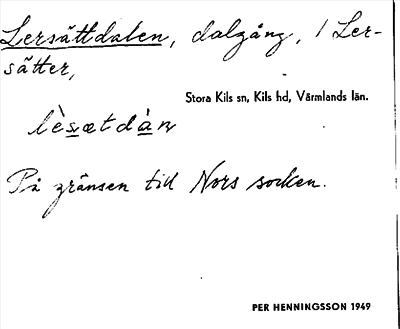 Lersättdalen, dalgång, i Ler-
sätter,
Stora Kils sn, Kils hd, Värmlands län.
lèsætdàn
På gränsen till Nors socken.
PER HENNINGSSON 1949